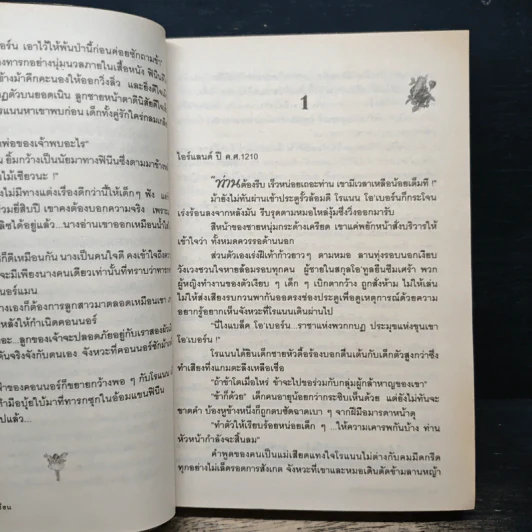 เบอร์น เอาไว้ให้พ้นป่านี้ก่อนค่อยซักถามข้า"
ทารกอย่างนุ่มนวลภายในเสื้อหนัง ฟินีนตี
ข้างม้าคึกคะนองให้ออกวิ่งลิ่ว และยิ่งดีใจ
ตัวบนยอดเนิน ลูกชายหน้าตาดีนิสัยดี
แนนหาเขาพบก่อน เด็กทั้งคู่รักใคร่กลมเกลียว
พ่อของเจ้าพบอะไร"
ยิ้มกว้างเป็นนัยมาทางฟินีนซึ่งตามมาข้าง
ไม้เชียวนะ !"
ไม่มีทางแต่งเรื่องดีกว่านี้ให้เด็กๆ ฟัง แต่
ยี่สิบปี เขาคงต้องบอกความจริง เพราะ
ได้อยู่แล้ว...นางอ่านเขาออกเหมือนน้ำใส
ก็ดีเหมือนกัน นางเป็นคนใจดี คงเข้าใจ
จะมีเพียงนางคนเดียวเท่านั้นที่ทราบว่าทารก
นอร์แมน
เองก็ต้องการลูกสาวมาตลอดเหมือนเขา
หลังให้กำเนิดคอนนอร์
...ลูกของเจ้าจะปลอดภัยอยู่กับเราสองผัวเมีย
จริงจังกับตนเอง จังหวะที่คอนนอร์ซัก
ของคอนนอร์ก็ขยายกว้างพอ ๆ กับโรแนน
มือบุ้ยใบ้มาที่ทารกซุกในอ้อมแขนฟินีน
ไปแล้ว...
1
ไอร์แลนด์ ปี ค.ศ.1210
"ท่านต้องรีบ เร็วหน่อยเถอะท่าน เขามีเวลาเหลือน้อยเต็มที !"
ม้ายังไม่ทันผ่านเข้าประตูรั้วล้อมดี โรแนน โอ'เบอร์นก็กระโจน
เร่งร้อนลงจากหลังมัน รีบรุดตามหมอไหล่งุ้มซึ่งวิ่งออกมารับ
สีหน้าของชายหนุ่มกระด้างเครียด เขาแค่พยักหน้าสั่งบริวารให้
เข้าใจว่า ทั้งหมดควรรอด้านนอก
ส่วนตัวเองเร่งฝีเท้าก้าวยาวๆ ตามหมอ ลานทุ่งรอบนอกเงียบ
วังเวงชวนใจหายล้อมรอบทุกคน ผู้ชายในสกุลโอ'ทูลยืนซึมเศร้า พวก
ผู้หญิงทำงานของตัวเงียบ ๆ เด็ก ๆ เบิกตากว้าง ถูกสั่งห้าม ไม่ให้เล่น
ไม่ให้ส่งเสียงรบกวนพากันออดรงช่องประตูเพื่อดูเหตุการณ์ด้วยความ
อยากรู้อยากเห็นจังหวะที่โรแนนเดินผ่านไป
"นี่ไงแบล็ค โอ'เบอร์น...ราชาแห่งพวกกบฏ ประมุขแห่งขุนเขา
โอ'เบอร์น !"
โรแนนได้ยินเด็กชายหัวดื้อร้องบอกตื่นเต้นกับเด็กตัวสูงกว่าซึ่ง
ทำเสียงทึ่งแกมตะลึงเหลือเชื่อ
"ถ้าข้าโตเมื่อไหร่ ข้าจะไปขอร่วมกับกลุ่มผู้กล้าหาญของเขา"
"ข้าก็ด้วย" เด็กคนอายุน้อยกว่ากระซิบเห็นด้วย แต่ยังไม่ทันจะ
ขาดคำ บ้องหูข้างหนึ่งก็ถูกตบชัดฉาดเบา ๆ จากฝีมือมารดาหน้าดุ
"ทำตัวให้เรียบร้อยหน่อยเด็ก ๆ ...ให้ความเคารพกันบ้าง ท่าน
หัวหน้ากำลังจะสิ้นลม"
คำพูดของคนเป็นแม่เสียดแทงใจโรแนนไม่ต่างกับคมมีดกรีด
ทุกอย่างไม่เล็ดรอดการสังเกต จังหวะที่เขาและหมอเดินตัดข้ามลานหญ้า